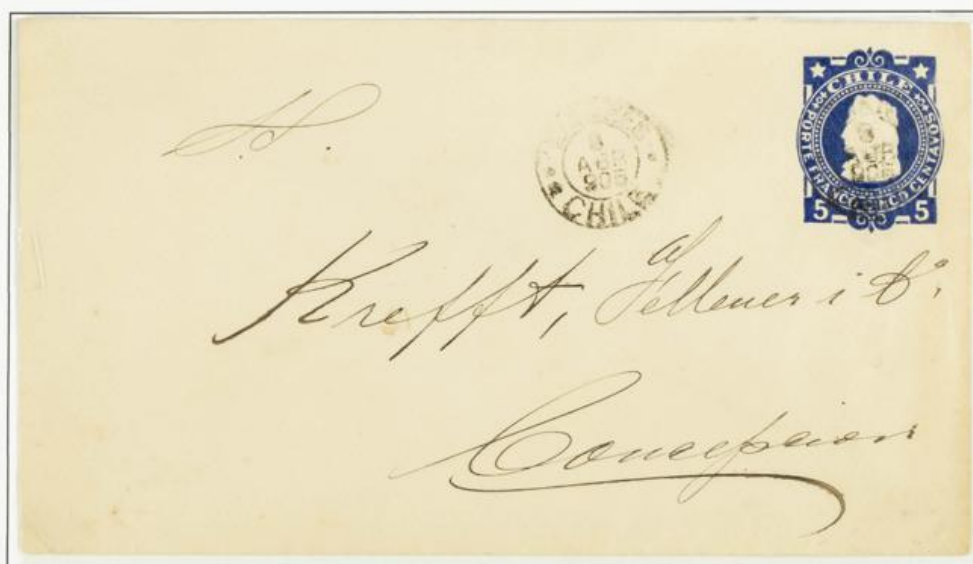 CHILE
PORTE FRANCO CINCO CENTAVOS
5 5
ABR
905
CHILE
S.
Krefft,
i Cº.
Concepcion